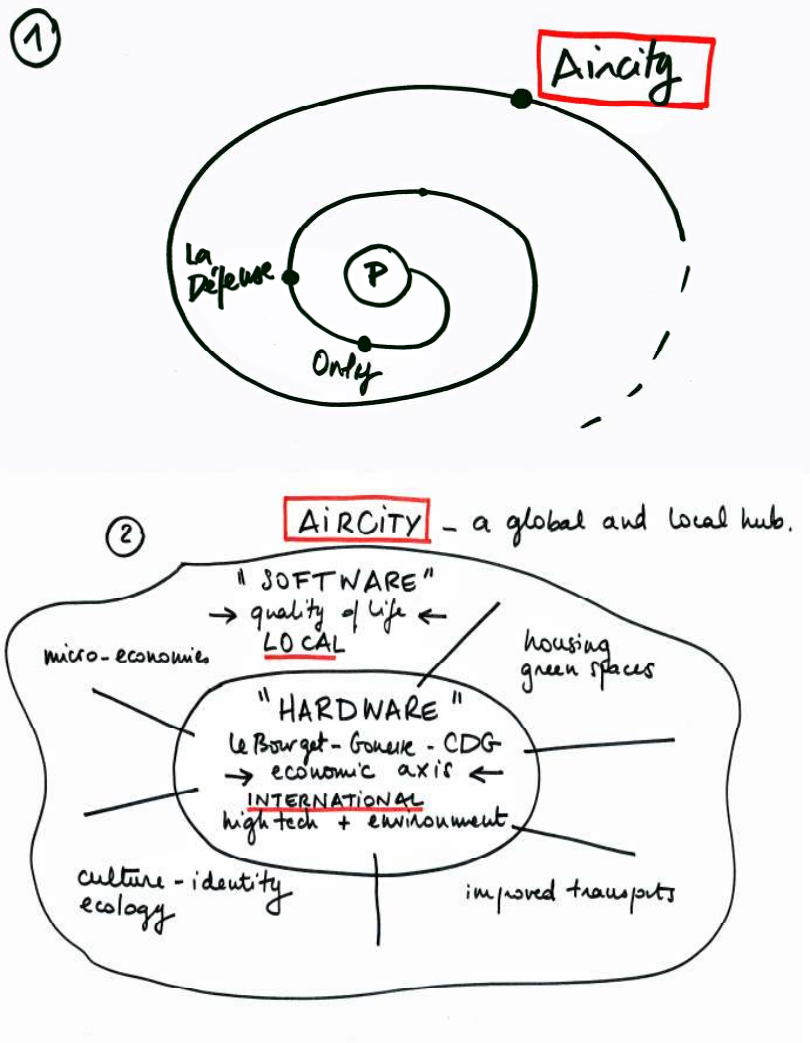 1
Aircity
La
Défense
P
Orly
2
AIRCITY - a global and local hub.
"SOFTWARE"
→ quality of life ←
LOCAL
micro-economies
housing
green spaces
"HARDWARE"
le Bourget - Gonesse - CDG
→ economic axis ←
INTERNATIONAL
high tech + environment
culture - identity
ecology
improved transports